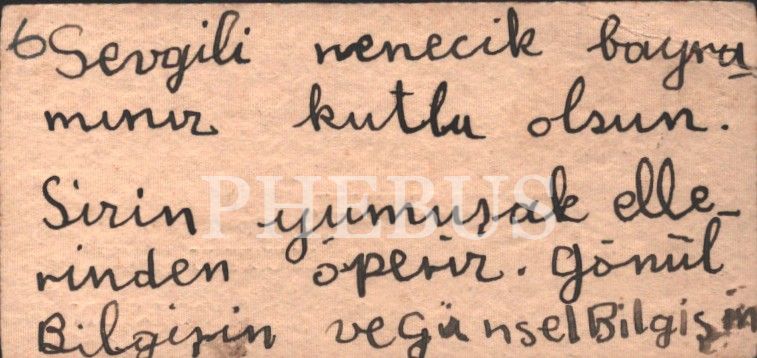 6 Sevgili nenecik bayra
mınız kutlu olsun.
Sizin yumuşak elle-
rinden öperiz. Gönül
Bilgişin ve Günsel Bilgişin
PHEBUS